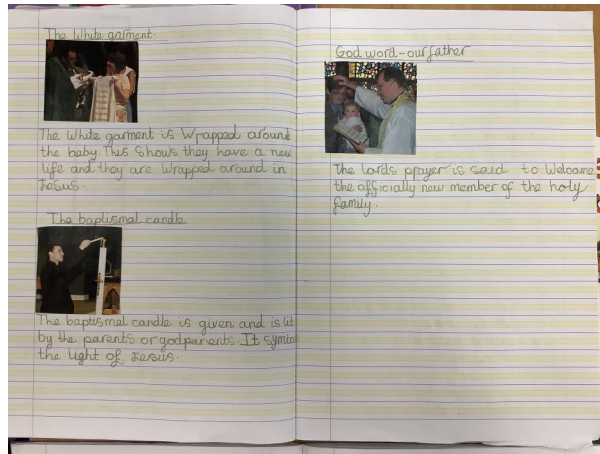 The White garment.
The White garment is Wrapped around
the baby. This Shows they have a new
life and they are Wrapped around in
Jesus.
The baptismal candle
The baptismal candle is given and is lit
by the parents or godparents. It symbo
the light of Jesus.
God word - our father
The lords prayer is said to Welcome
the officially new member of the holy
family.